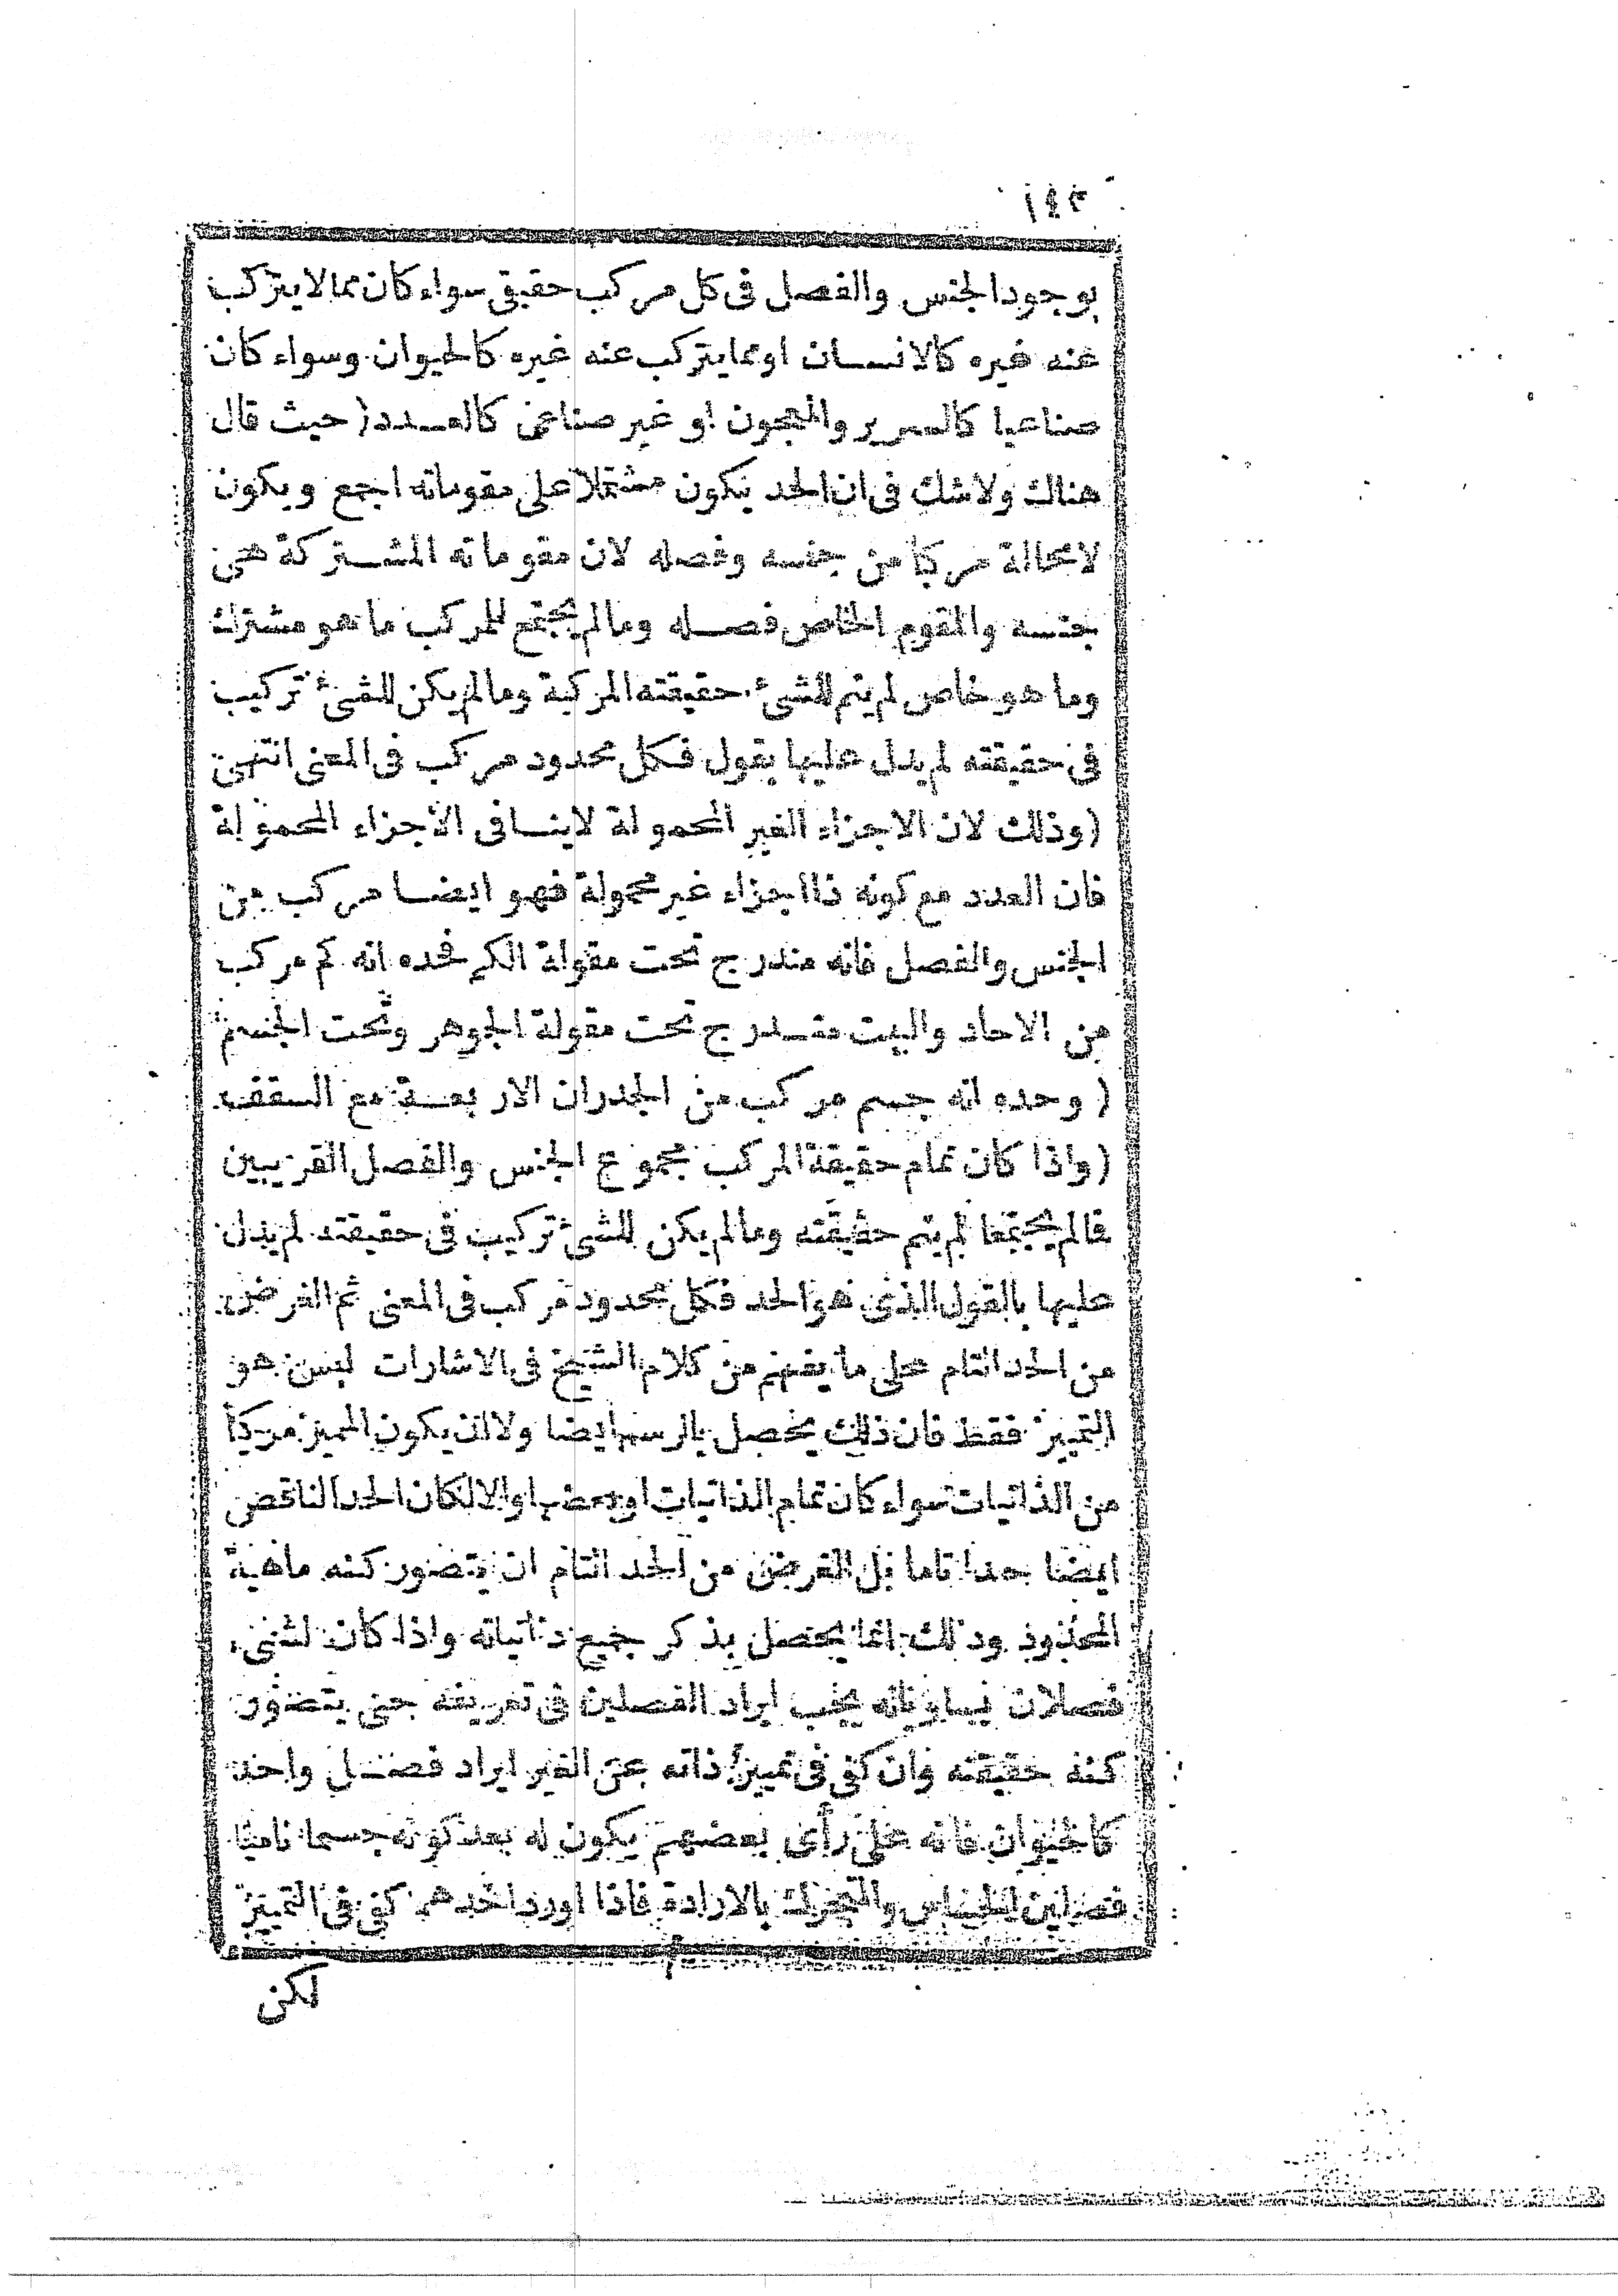 بوجود الجنس والفصل فى كل مركب حقيقى سواء كان مما لا يتركب
عنه غيره كالانسان او مما يتركب عنه غيره كالحيوان وسواء كان
صناعيا كالسرير والمعجون او غير صناعى كالعدد ( حيث قال
هناك ولا شك فى ان الحد يكون مشتملا على مقوماته اجمع ويكون
لا محالة مركبا من جنسه وفصله لان مقوماته المشتركة هى
جنسه والمقوم الخاص فصله وما لم يجتمع للمركب ما هو مشترك
وما هو خاص لم يتم للشئ حقيقته المركبة وما لم يكن للشئ تركيب
فى حقيقته لم يدل عليها بقول فكل محدود مركب فى المعنى انتهى
( وذلك لان الاجزاء الغير المحمولة لا ينافى الاجزاء المحمولة
فان العدد مع كونه ذا اجزاء غير محمولة فهو ايضا مركب من
الجنس والفصل فانه مندرج تحت مقولة الكم فحده انه كم مركب
من الاحاد والبيت مندرج تحت مقولة الجوهر وتحت الجسم
( وحده انه جسم مركب من الجدران الاربعة مع السقف
( واذا كان تمام حقيقة المركب مجموع الجنس والفصل القريبين
فما لم يجتمعا لم يتم حقيقته وما لم يكن للشئ تركيب فى حقيقته لم يدل
عليها بالقول الذى هو الحد فكل محدود مركب فى المعنى ثم الغرض
من الحد التام على ما يفهم من كلام الشيخ فى الاشارات ليس هو
التمييز فقط فان ذلك يحصل بالرسم ايضا ولا ان يكون المميز مركبا
من الذاتيات سواء كان تمام الذاتيات او بعضها والا لكان الحد الناقص
ايضا حدا تاما بل الغرض من الحد التام ان يتصور كنه ماهية
المحدود وذلك انما يحصل بذكر جميع ذاتياته واذا كان لشئ
فصلان يجب ايراد الفصلين فى تعريفه حتى يتصور
كنه حقيقته وان كفى فى تمييز ذاته عن الغير ايراد فصل واحد
كالحيوان فانه على رأى بعضهم يكون له بعد كونه جسما ناميا
فصلين الحساس والمتحرك بالارادة فاذا اورد احدهم كفى فى التمييز
لكن